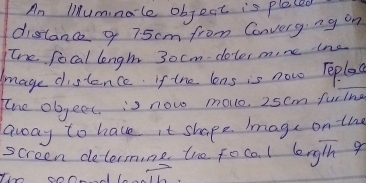 An Illuminate object is placed
distance of 75cm from Converging on
The focal length 30cm determine the
image distance. If the lens is now replac
the object is now move 25cm further
away to have it shape Image on the
screen determine the focal length of
the second length